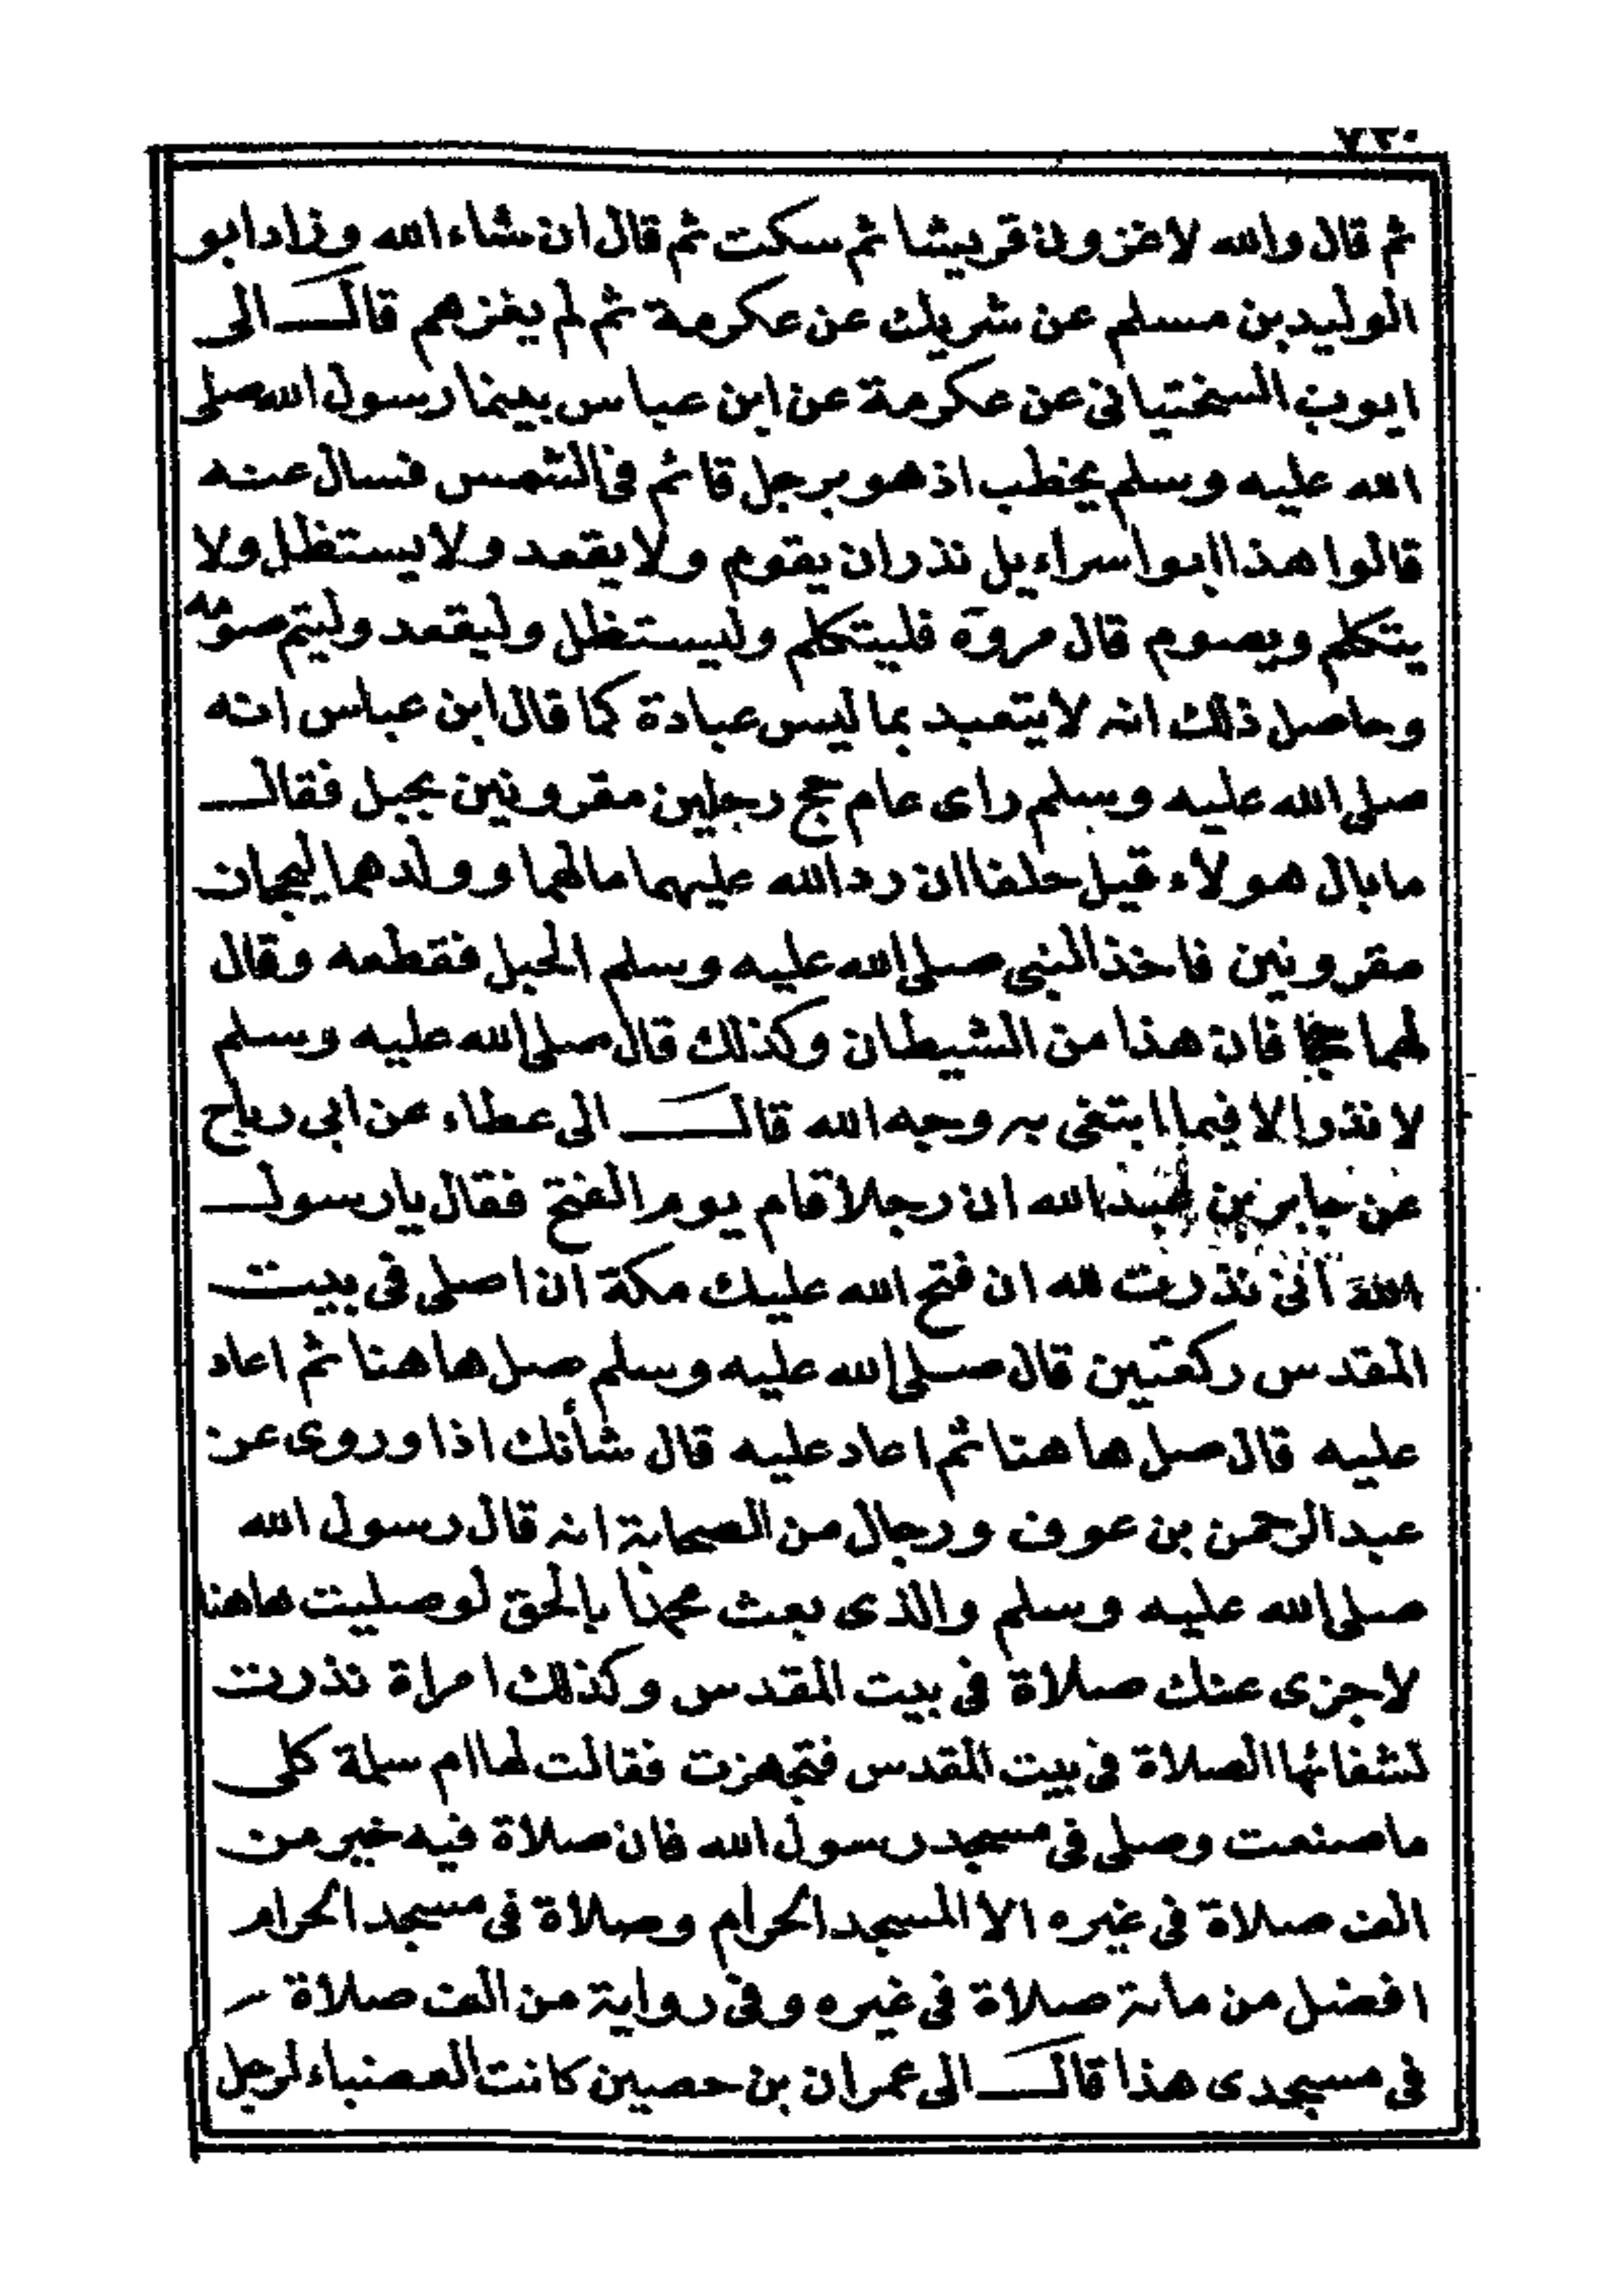 ٧٢٠
ثم قال والله لاغزون قريشا ثم سكت ثم قال ان شاء الله وزاد ابو
الوليد بن مسلم عن شريك عن عكرمة ثم لم يغزهم قال الى
ايوب السختيانى عن عكرمة عن ابن عباس بينما رسول الله صلى
الله عليه وسلم يخطب اذ هو برجل قائم فى الشمس فسال عنه
قالوا هذا ابوا سراءيل نذر ان يقوم ولا يقعد ولا يستظل ولا
يتكلم ويصوم قال مروه فليتكلم وليستظل وليقعد وليتم صومه
وحاصل ذلك انه لا يتعبد بما ليس عبادة كما قال ابن عباس انه
صلى الله عليه وسلم راى عام حج رجلين مقرونين بحبل فقال
ما بال هولاء قيل حلفا ان رد الله عليهما مالهما وولدهما ليحجان
مقرونين فاخذ النبى صلى الله عليه وسلم الحبل فقطعه وقال
لهما حجا فان هذا من الشيطان وكذلك قال صلى الله عليه وسلم
لا نذوا الا فيما ابتغى به وجه الله قال الى عطاء عن ابى رباح
عن جابر بن عبد الله ان رجلا قام يوم الفتح فقال يا رسول
الله انى نذرت لله ان فتح الله عليك مكة ان اصلى فى بيت
المقدس ركعتين قال صلى الله عليه وسلم صل ها هنا ثم اعاد
عليه قال صل ها هنا ثم اعاد عليه قال شأنك اذا وروى عن
عبد الرحمن بن عوف ورجال من الصحابة انه قال رسول الله
صلى الله عليه وسلم والذى بعث محمدا بالحق لو صليت هاهنا
لاجزى عنك صلاة فى بيت المقدس وكذلك امراة نذرت
لشفائها الصلاة فى بيت المقدس فتجهزت فقالت لها ام سلمة كلى
ما صنعت وصلى فى مسجد رسول الله فان صلاة فيه خير من
الف صلاة فى غيره الا المسجد الحرام وصلاة فى مسجد الحرام
افضل من مائة صلاة فى غيره وفى رواية من الف صلاة
فى مسجدى هذا قال الى عمران بن حصين كانت العضباء لرجل